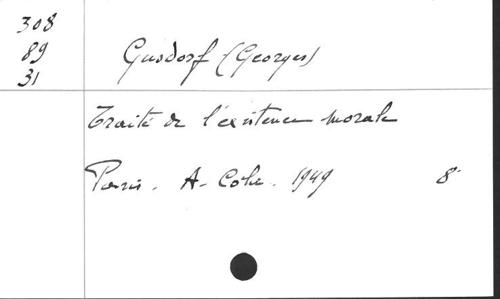 308
89
31
Gusdorf (Georges)
Traité de l'existence morale
Paris. A. Colin. 1949 8°